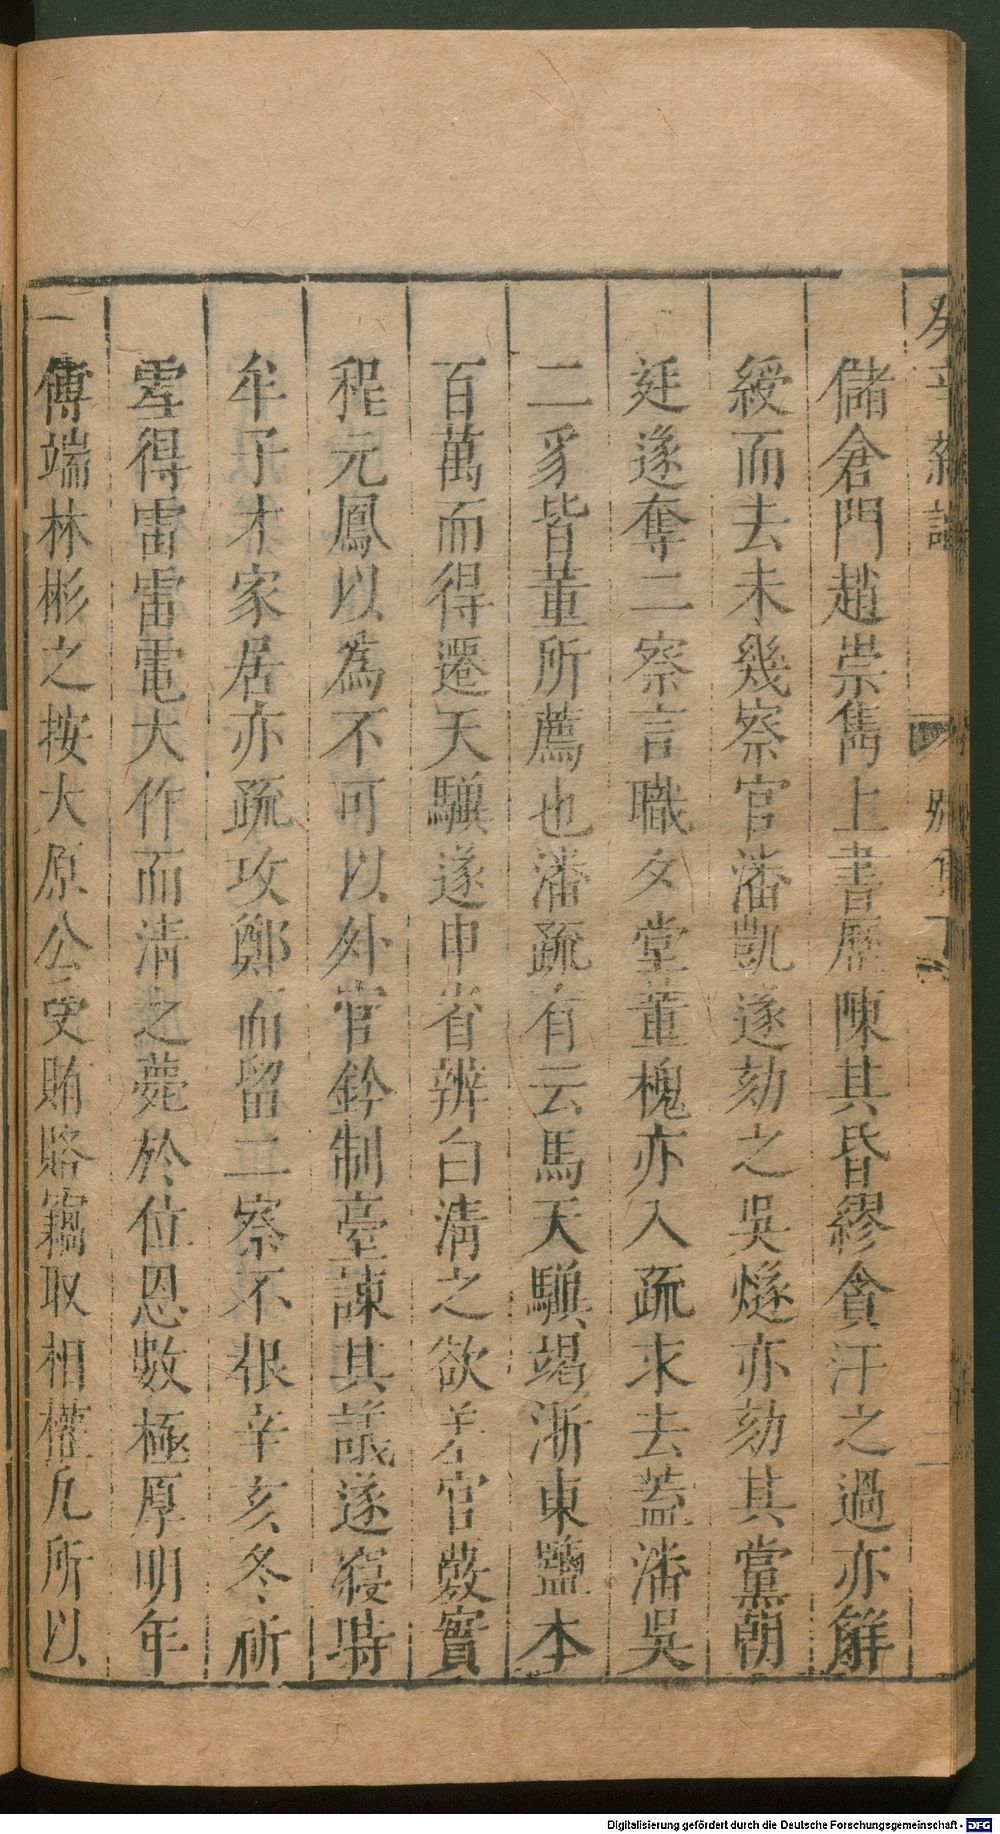 癸辛雜識 別集下
儲倉門趙崇雋上書歷陳其昏繆貪汗之過亦觧
綬而去未幾察官潘凱遂劾之吳燧亦劾其黨朝
廷遂奪二察言職夕堂董槐亦入疏求去蓋潘吳
二豸皆董所薦也潘疏有云馬天驥竭浙東鹽本
百萬而得遷天驥遂申省辨白清之欲差官覈實
程元鳳以為不可以外官鈐制臺諫其議遂寢時
牟子才家居亦疏攻鄭而留二察不報辛亥冬祈
雪得雷雷電大作而清之薨於位恩數極厚明年
傅端林彬之按大原公受賄賂竊取相權凡所以
Digitalisierung gefördert durch die Deutsche Forschungsgemeinschaft - DFG